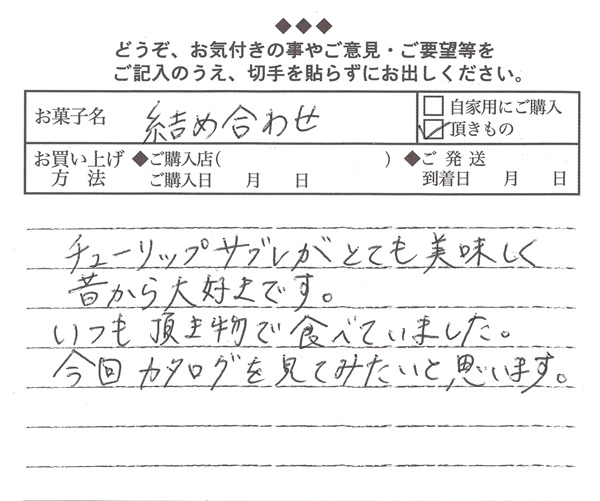 ◆◆◆
どうぞ、お気付きの事やご意見・ご要望等を
ご記入のうえ、切手を貼らずにお出しください。
お菓子名 結め合わせ □自家用にご購入
☑頂きもの
お買い上げ方法 ◆ご購入店( ) ◆ご発送
ご購入日 月 日 到着日 月 日
チューリップサブレがとても美味しく
昔から大好きです。
いつも頂き物で食べていました。
今回カタログを見てみたいと思います。